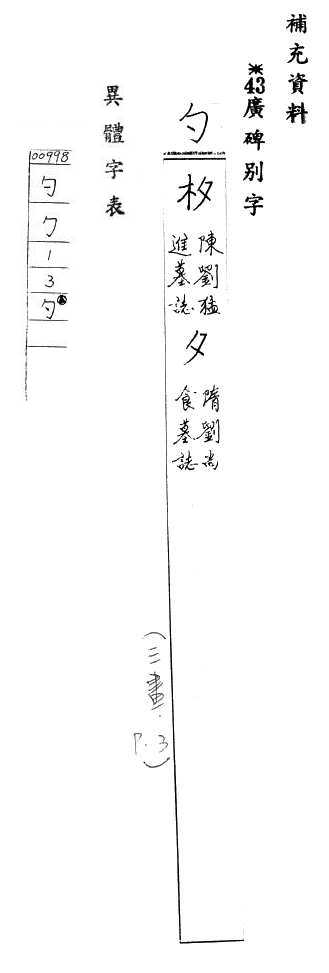 補充資料
*43廣碑別字
勺
杓
陳劉猛
進墓誌
夕
隋劉尚
食墓誌
(三畫.
P.3)
異體字表
00998
勺
勹
1
3
勺